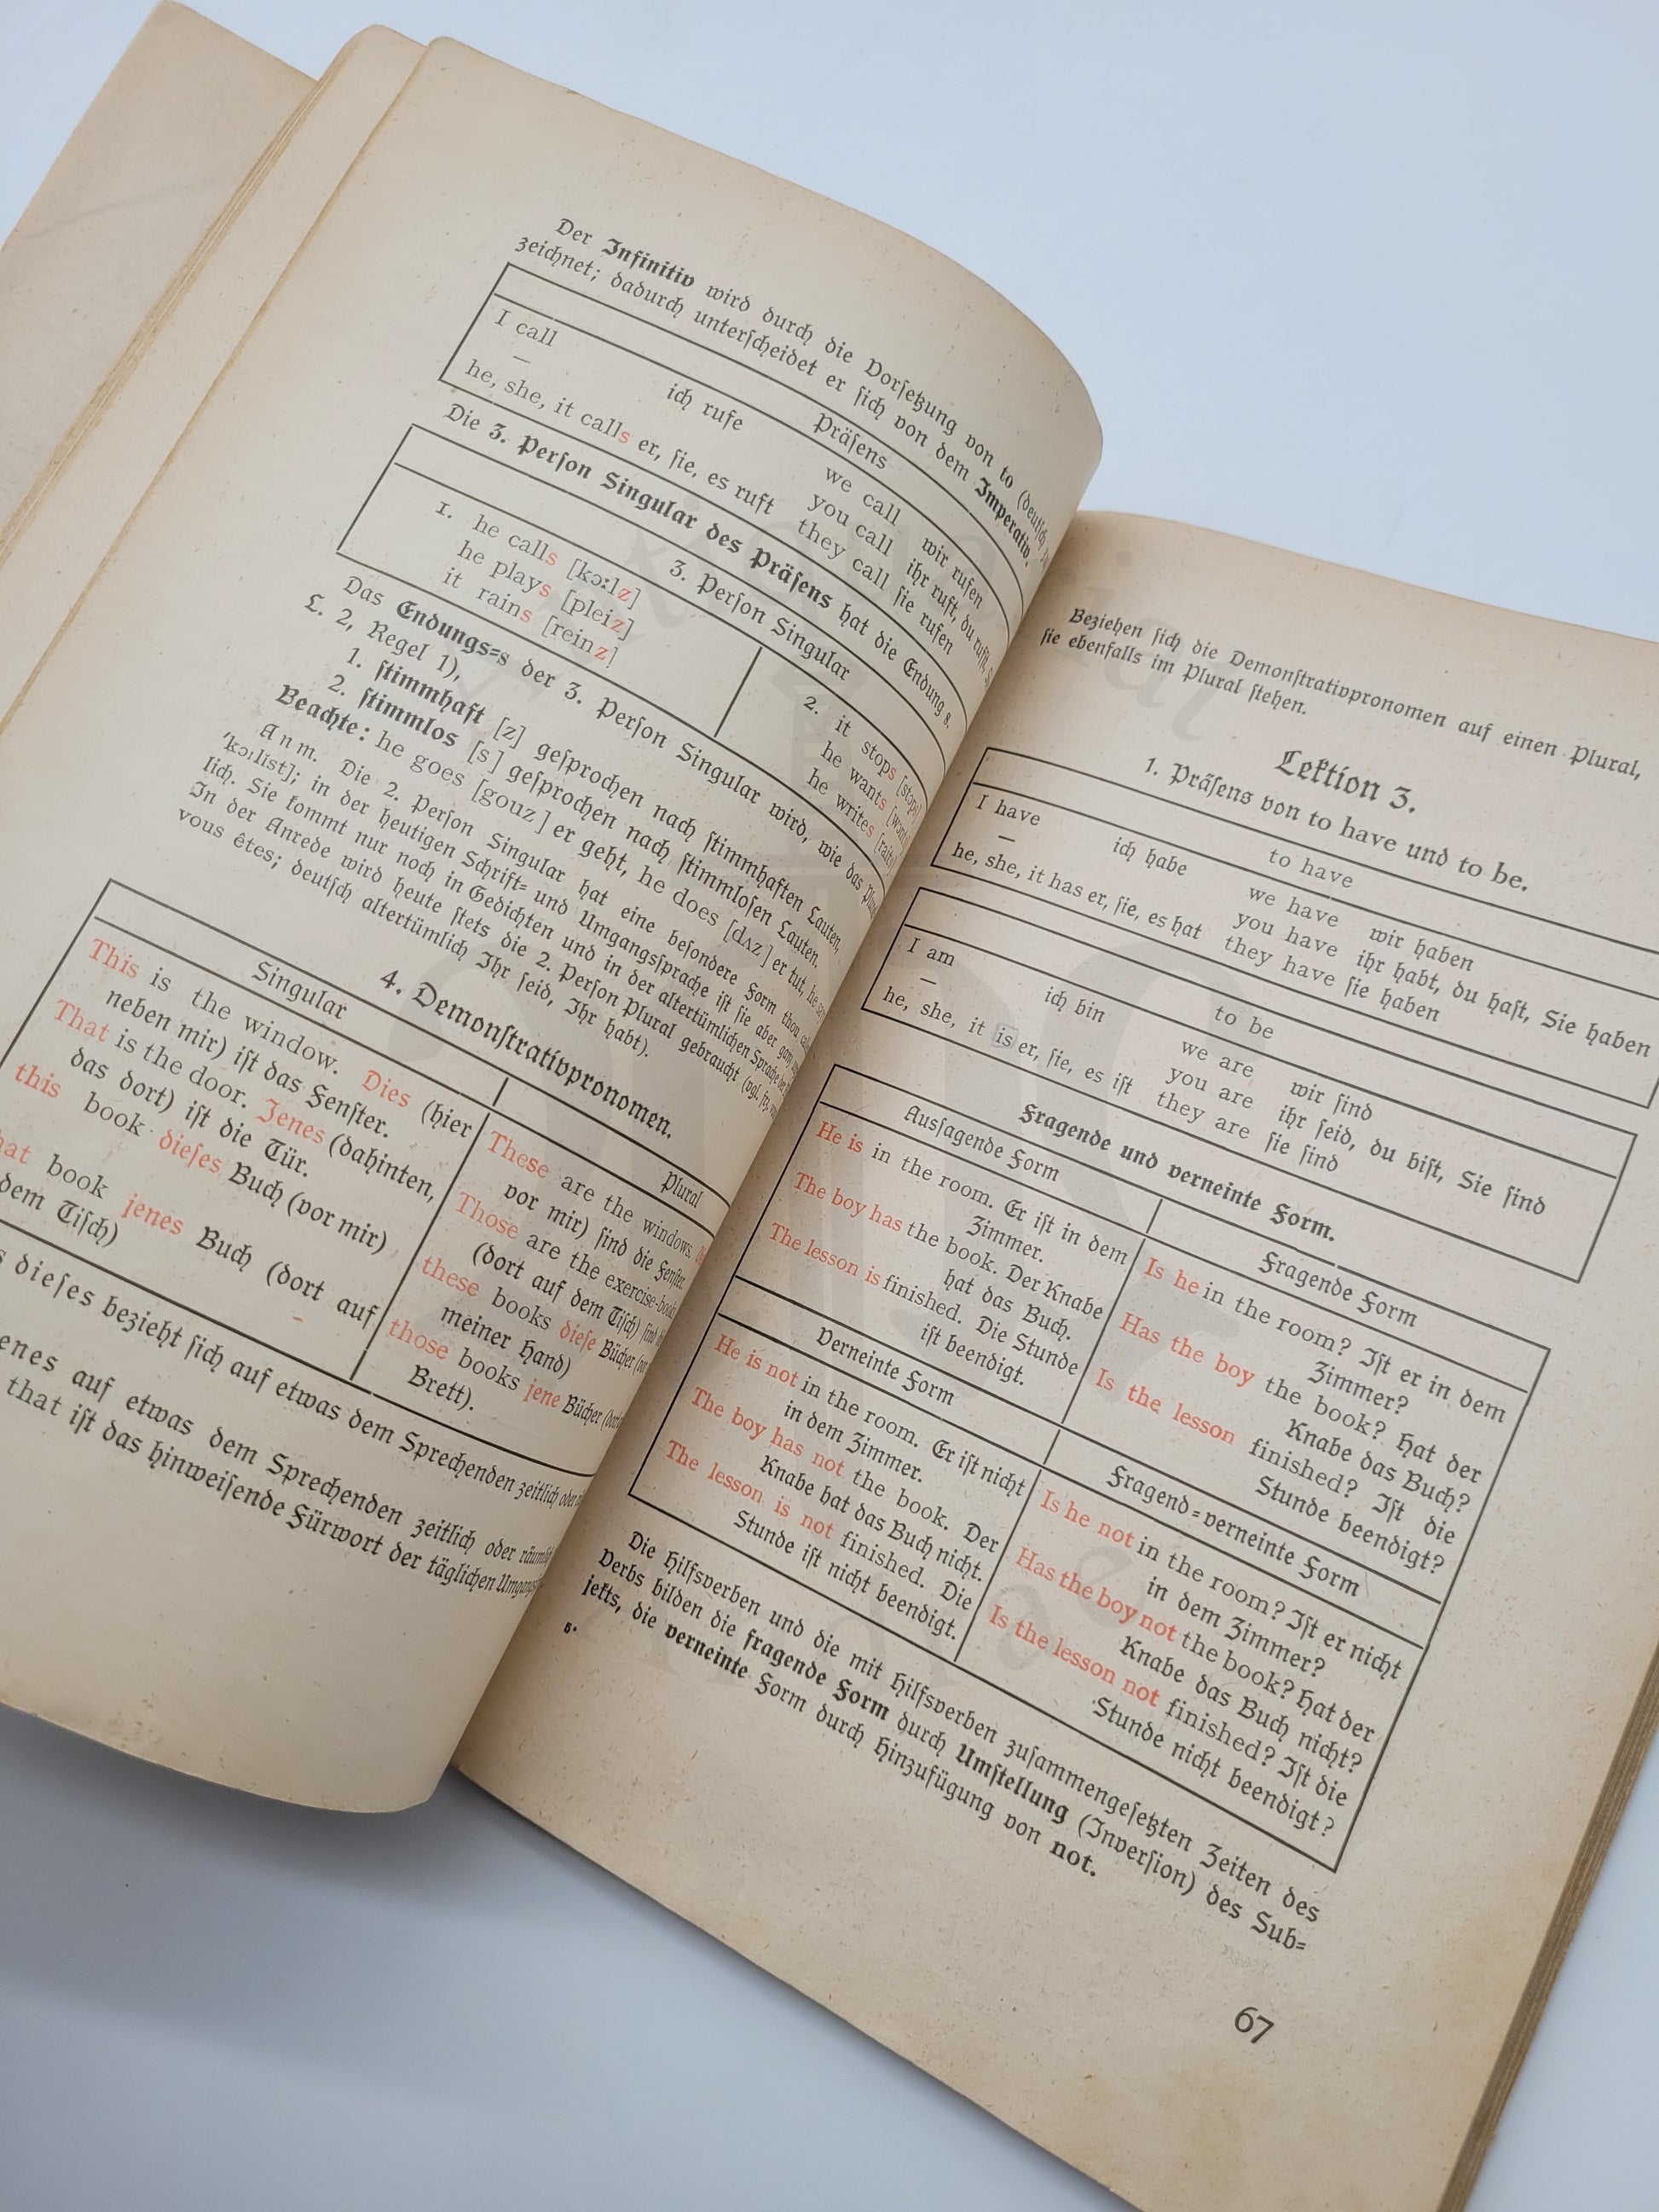 Der Infinitiv wird durch die Vorsetzung von to (deutsch
zeichnet; dadurch unterscheidet er sich von dem Imperativ.
Präsens
I call ich rufe we call wir rufen
— you call ihr ruft, du rufst,
he, she, it calls er, sie, es ruft they call sie rufen
Die 3. Person Singular des Präsens hat die Endung s.
3. Person Singular
1. he calls [kɔ:lz]
he plays [pleiz]
it rains [reinz]
2. it stops [stɔps]
he wants
he writes [raits]
Das Endungs=s der 3. Person Singular wird, wie das
L. 2, Regel 1),
1. stimmhaft [z] gesprochen nach stimmhaften Lauten,
2. stimmlos [s] gesprochen nach stimmlosen Lauten.
Beachte: he goes [gouz] er geht, he does [dʌz] er tut, he
Anm. Die 2. Person Singular hat eine besondere Form thou
in der heutigen Schrift= und Umgangssprache ist sie aber ganz
lich. Sie kommt nur noch in Gedichten und in der altertümlichen Sprache der
In der Anrede wird heute stets die 2. Person Plural gebraucht (vgl.
vous êtes; deutsch altertümlich Ihr seid, Ihr habt).
4. Demonstrativpronomen.
Singular
This is the window. Dies (hier
neben mir) ist das Fenster.
That is the door. Jenes (dahinten,
das dort) ist die Tür.
this book dieses Buch (vor mir)
book jenes Buch (dort auf
dem Tisch)
Plural
These are the windows.
vor mir) sind die Fenster.
Those are the exercise-books
(dort auf dem Tisch) sind
these books diese Bücher
meiner Hand)
those books jene Bücher
Brett).
dieses bezieht sich auf etwas dem Sprechenden zeitlich oder
auf etwas dem Sprechenden zeitlich oder
that ist das hinweisende Fürwort der täglichen
Beziehen sich die Demonstrativpronomen auf einen Plural,
sie ebenfalls im Plural stehen.
Lektion 3.
1. Präsens von to have und to be.
to have
I have ich habe we have wir haben
— you have ihr habt, du hast, Sie haben
he, she, it has er, sie, es hat they have sie haben
to be
I am ich bin we are wir sind
— you are ihr seid, du bist, Sie sind
he, she, it is er, sie, es ist they are sie sind
Fragende und verneinte Form.
Aussagende Form
He is in the room. Er ist in dem
Zimmer.
The boy has the book. Der Knabe
hat das Buch.
The lesson is finished. Die Stunde
ist beendigt.
Fragende Form
Is he in the room? Ist er in dem
Zimmer?
Has the boy the book? Hat der
Knabe das Buch?
Is the lesson finished? Ist die
Stunde beendigt?
Verneinte Form
He is not in the room. Er ist nicht
in dem Zimmer.
The boy has not the book. Der
Knabe hat das Buch nicht.
The lesson is not finished. Die
Stunde ist nicht beendigt.
Fragend=verneinte Form
Is he not in the room? Ist er nicht
in dem Zimmer?
Has the boy not the book? Hat der
Knabe das Buch nicht?
Is the lesson not finished? Ist die
Stunde nicht beendigt?
Die Hilfsverben und die mit Hilfsverben zusammengesetzten Zeiten des
Verbs bilden die fragende Form durch Umstellung (Inversion) des Sub=
jekts, die verneinte Form durch Hinzufügung von not.
67